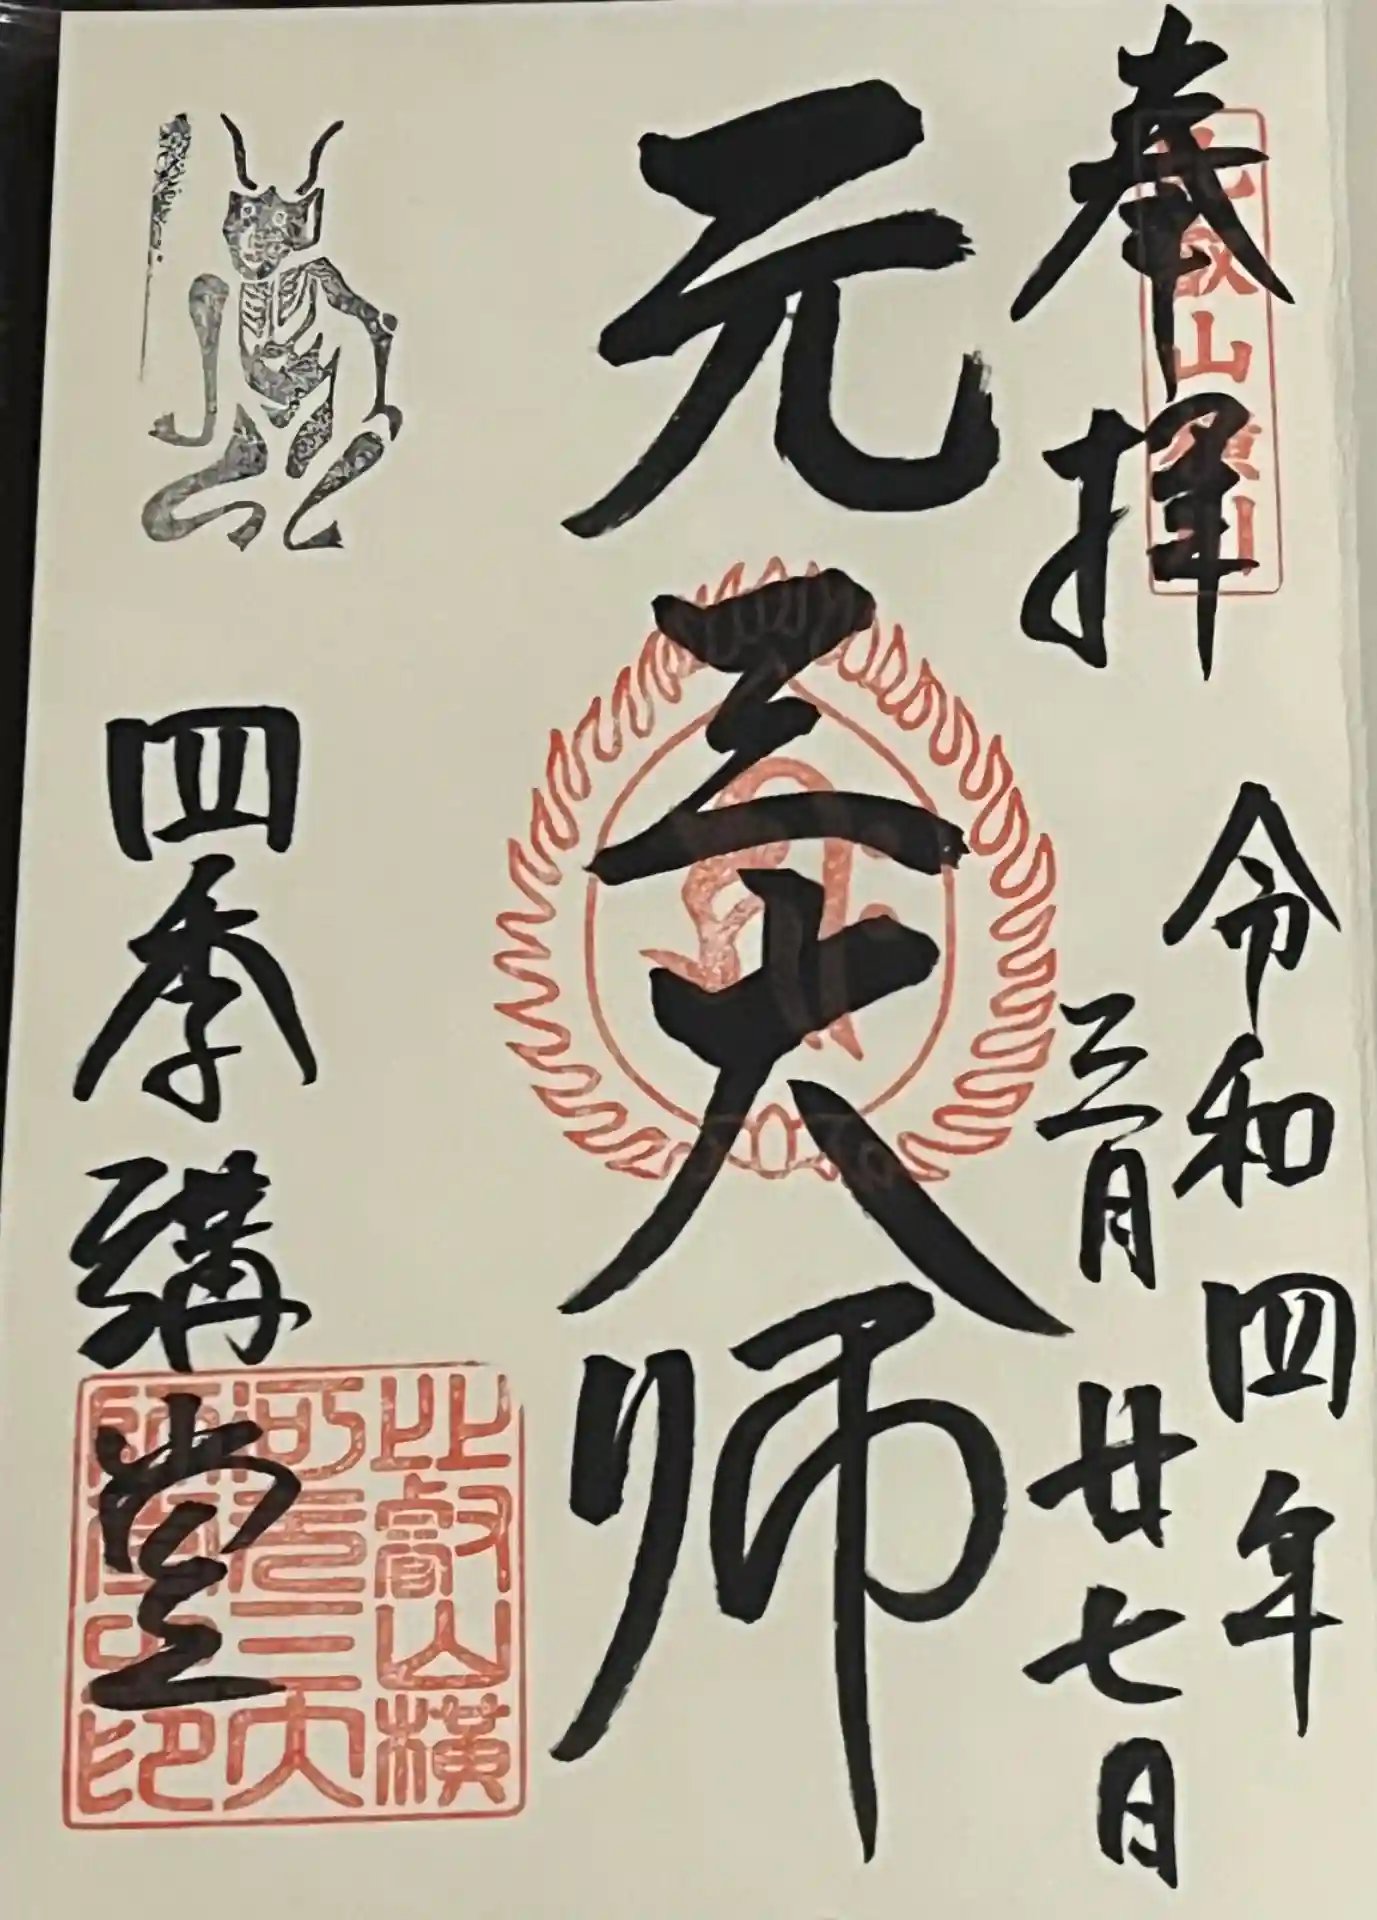 奉拝
比叡山横川
令和四年
三月廿七日
元三大師
四季講堂
比叡山横
川元三大
師堂之印